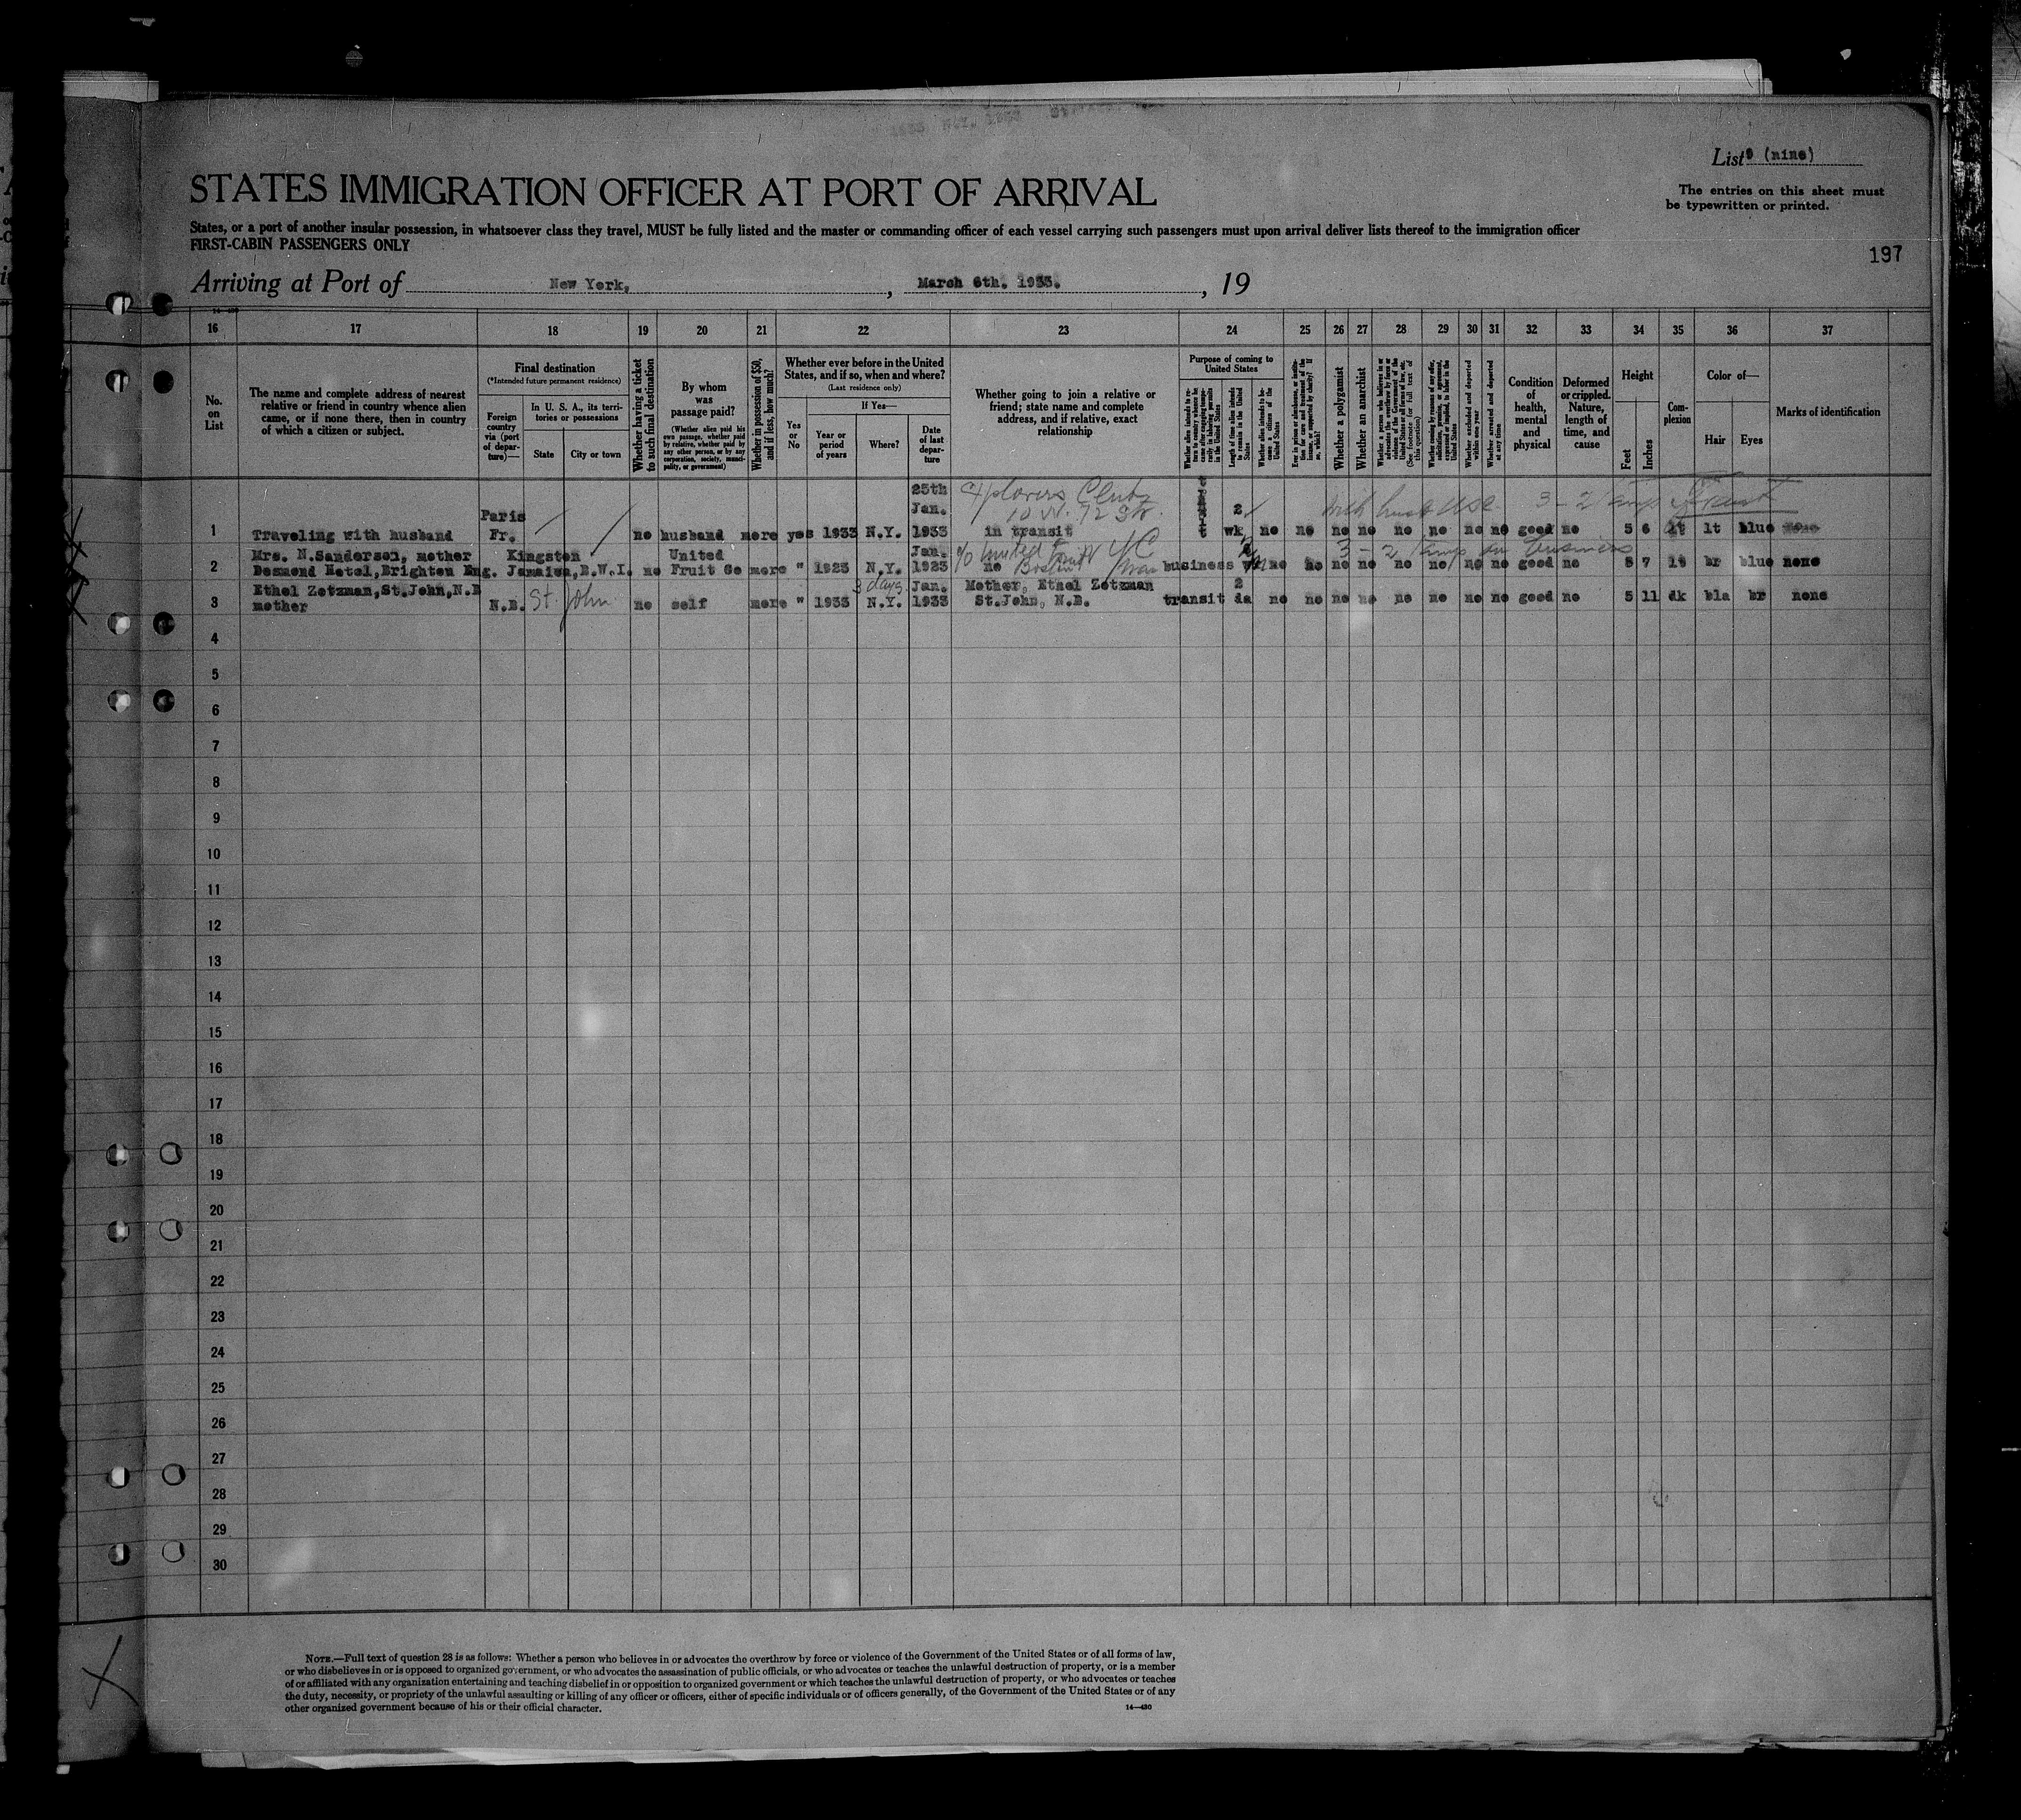 List 9 (nine)
STATES IMMIGRATION OFFICER AT PORT OF ARRIVAL
The entries on this sheet must
be typewritten or printed.
States, or a port of another insular possession, in whatsoever class they travel, MUST be fully listed and the master or commanding officer of each vessel carrying such passengers must upon arrival deliver lists thereof to the immigration officer
FIRST-CABIN PASSENGERS ONLY
197
Arriving at Port of New York, , March 6th. 1933. , 19
16 17 18 19 20 21 22 23 24 25 26 27 28 29 30 31 32 33 34 35 36 37
No. on List
The name and complete address of nearest relative or friend in country whence alien came, or if none there, then in country of which a citizen or subject.
Final destination
(*Intended future permanent residence)
Foreign country via (port of departure)—
In U. S. A., its territories or possessions
State
City or town
Whether having a ticket to such final destination
By whom was passage paid?
(Whether alien paid his own passage, whether paid by relative, whether paid by any other person, or by any corporation, society, municipality, or government)
Whether in possession of $50, and if less, how much?
Whether ever before in the United States, and if so, when and where?
(Last residence only)
If Yes—
Yes or No
Year or period of years
Where?
Date of last departure
Whether going to join a relative or friend; state name and complete address, and if relative, exact relationship
Purpose of coming to United States
Length of time alien intends to remain in the United States
Whether alien intends to become a citizen of the United States
Whether a polygamist
Whether an anarchist
(See footnote for full text of this question)
Whether arrested and deported within one year
Whether arrested and deported at any time
Condition of health, mental and physical
Deformed or crippled. Nature, length of time, and cause
Height
Feet
Inches
Complexion
Color of—
Hair
Eyes
Marks of identification
25th
Paris Jan. 10 W. 72 St. 2
1 Traveling with husband Fr. no husband more yes 1933 N.Y. 1933 in transit wk no no no no no no no no good no 5 6 lt lt blue none
Mrs. N.Sanderson, mother Kingston United Jan.
2 Desmond Hotel,Brighton Eng. Jamaica,B.W.I. no Fruit Co more " 1923 N.Y. 1923 no business no no no no no no no no good no 5 7 lt br blue none
Ethel Zetzman,St.John,N.B 3 days Jan. Mother, Ethel Zetzman 2
3 mother N.B. St. John no self more " 1933 N.Y. 1933 St.John, N.B. transit da no no no no no no no no good no 5 11 dk bla br none
4
5
6
7
8
9
10
11
12
13
14
15
16
17
18
19
20
21
22
23
24
25
26
27
28
29
30
NOTE.—Full text of question 28 is as follows: Whether a person who believes in or advocates the overthrow by force or violence of the Government of the United States or of all forms of law,
or who disbelieves in or is opposed to organized government, or who advocates the assassination of public officials, or who advocates or teaches the unlawful destruction of property, or is a member
of or affiliated with any organization entertaining and teaching disbelief in or opposition to organized government or which teaches the unlawful destruction of property, or who advocates or teaches
the duty, necessity, or propriety of the unlawful assaulting or killing of any officer or officers, either of specific individuals or of officers generally, of the Government of the United States or of any
other organized government because of his or their official character.
14—430